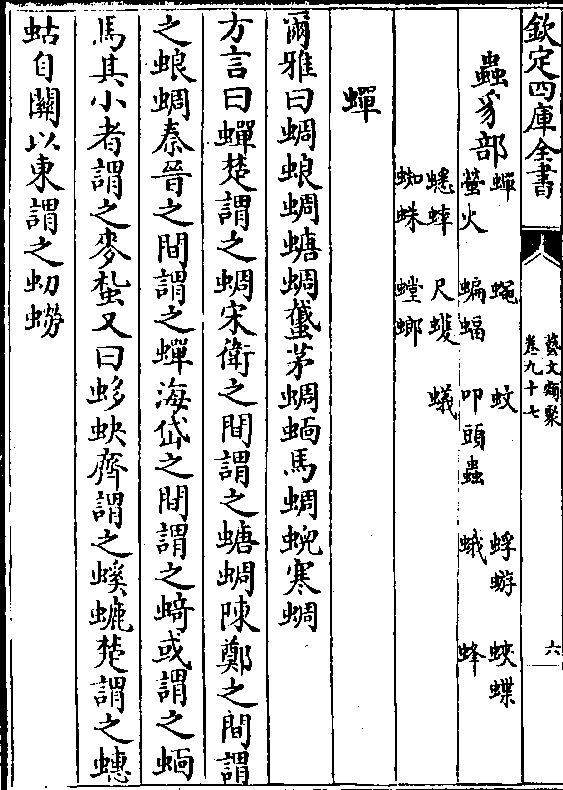 欽定四庫全書
藝文類聚
卷九十七
六
蟲豸部
蟬 蠅 蚊 蜉蝣 蛺蝶
螢火 蝙蝠 叩頭蟲 蛾 蜂
蟋蟀 尺蠖 蟻
蜘蛛 螳螂
蟬
爾雅曰蜩蜋蜩螗蜩蠽茅蜩蝒馬蜩蜺寒蜩
方言曰蟬楚謂之蜩宋衛之間謂之螗蜩陳鄭之間謂
之蜋蜩秦晉之間謂之蟬海岱之間謂之蛴或謂之蝒
馬其小者謂之麥蚻又曰蛥蚗齊謂之螇螰楚謂之蟪
蛄自關以東謂之虭蟧